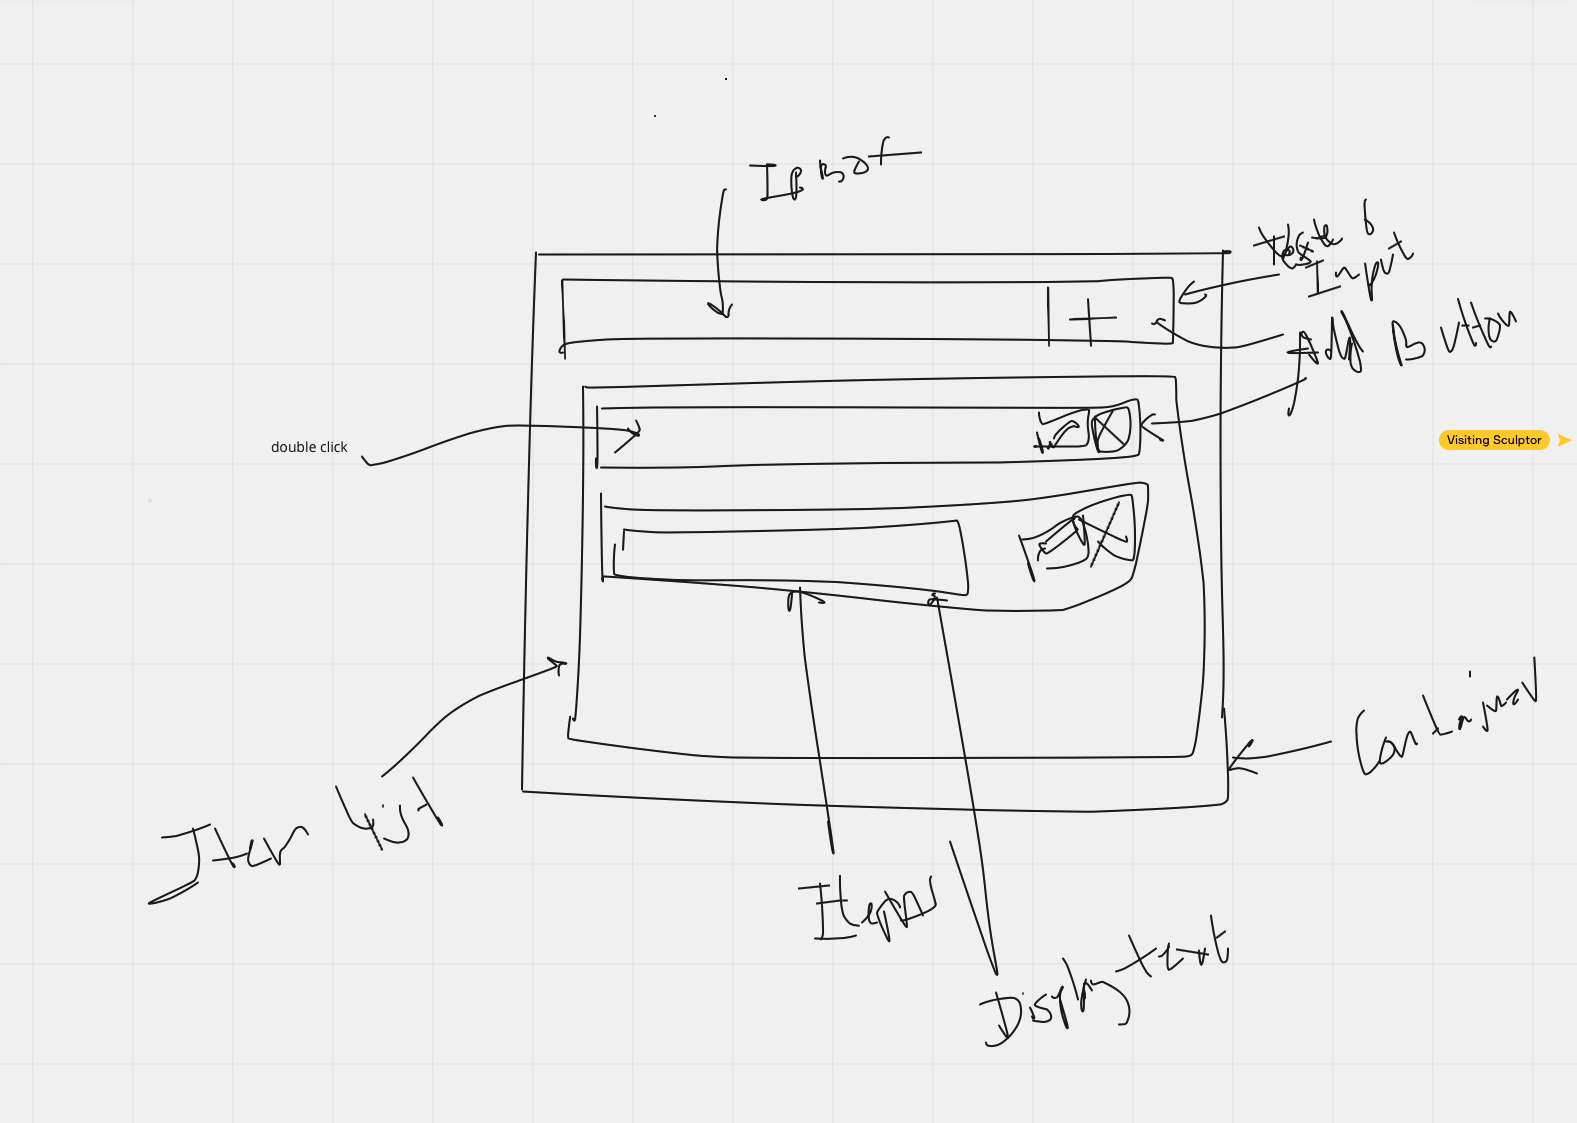 Input
Add Button
double click
Visiting Sculptor
Container
Item List
Item
Display text